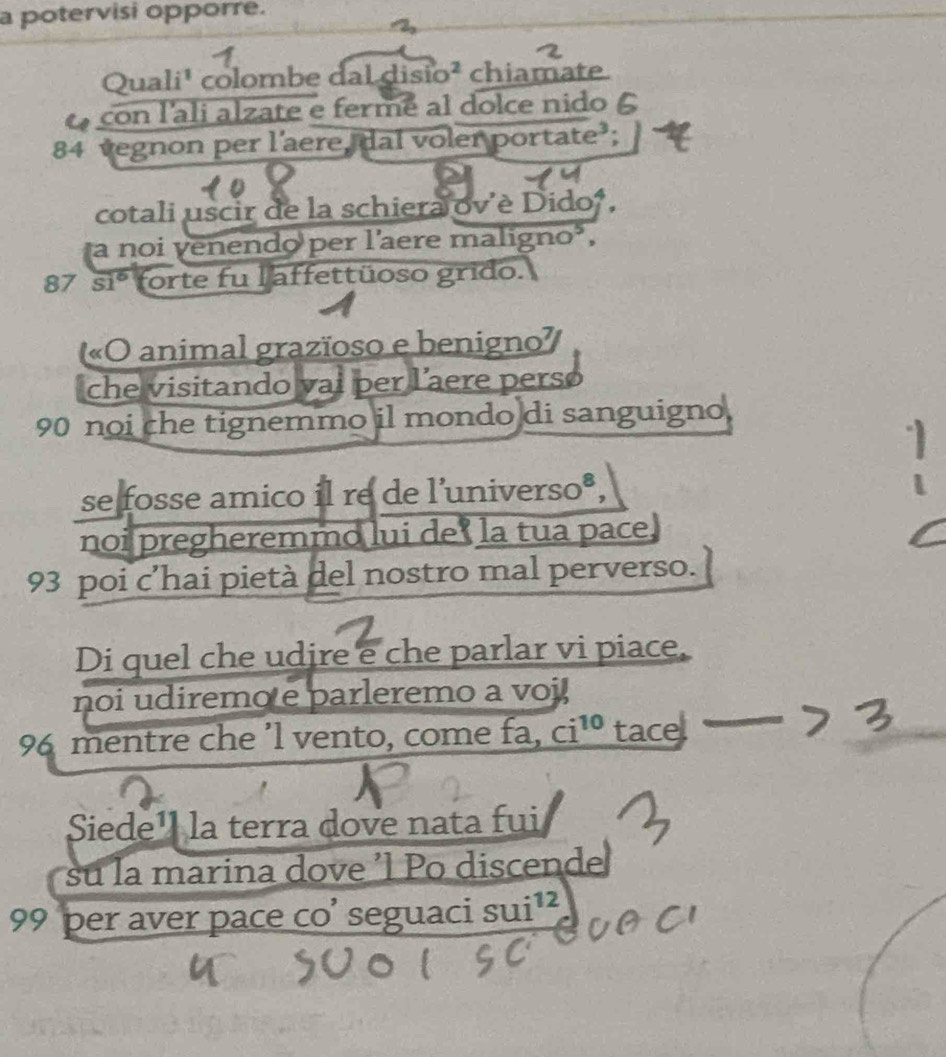 a potervisi opporre.
3
1 2
Quali¹ colombe dal disio² chiamate
con l'ali alzate e ferme al dolce nido 6
84 vegnon per l'aere, dal voler portate³;
10 8 14
cotali uscir de la schiera ov'è Dido⁴,
a noi venendo per l'aere maligno⁵,
87 sì⁶ forte fu l'affettüoso grido.
1
«O animal grazïoso e benigno⁷
che visitando vai per l'aere perso
90 noi che tignemmo il mondo di sanguigno,
se fosse amico il re de l'universo⁸,
noi pregheremmo lui de⁹ la tua pace,
93 poi c'hai pietà del nostro mal perverso.
2
Di quel che udire e che parlar vi piace,
noi udiremo e parleremo a voi,
96 mentre che 'l vento, come fa, ci¹⁰ tace. —> 3
2 1 2
Siede¹¹ la terra dove nata fui 3
su la marina dove 'l Po discende
99 per aver pace co' seguaci sui¹².
4 SUOI